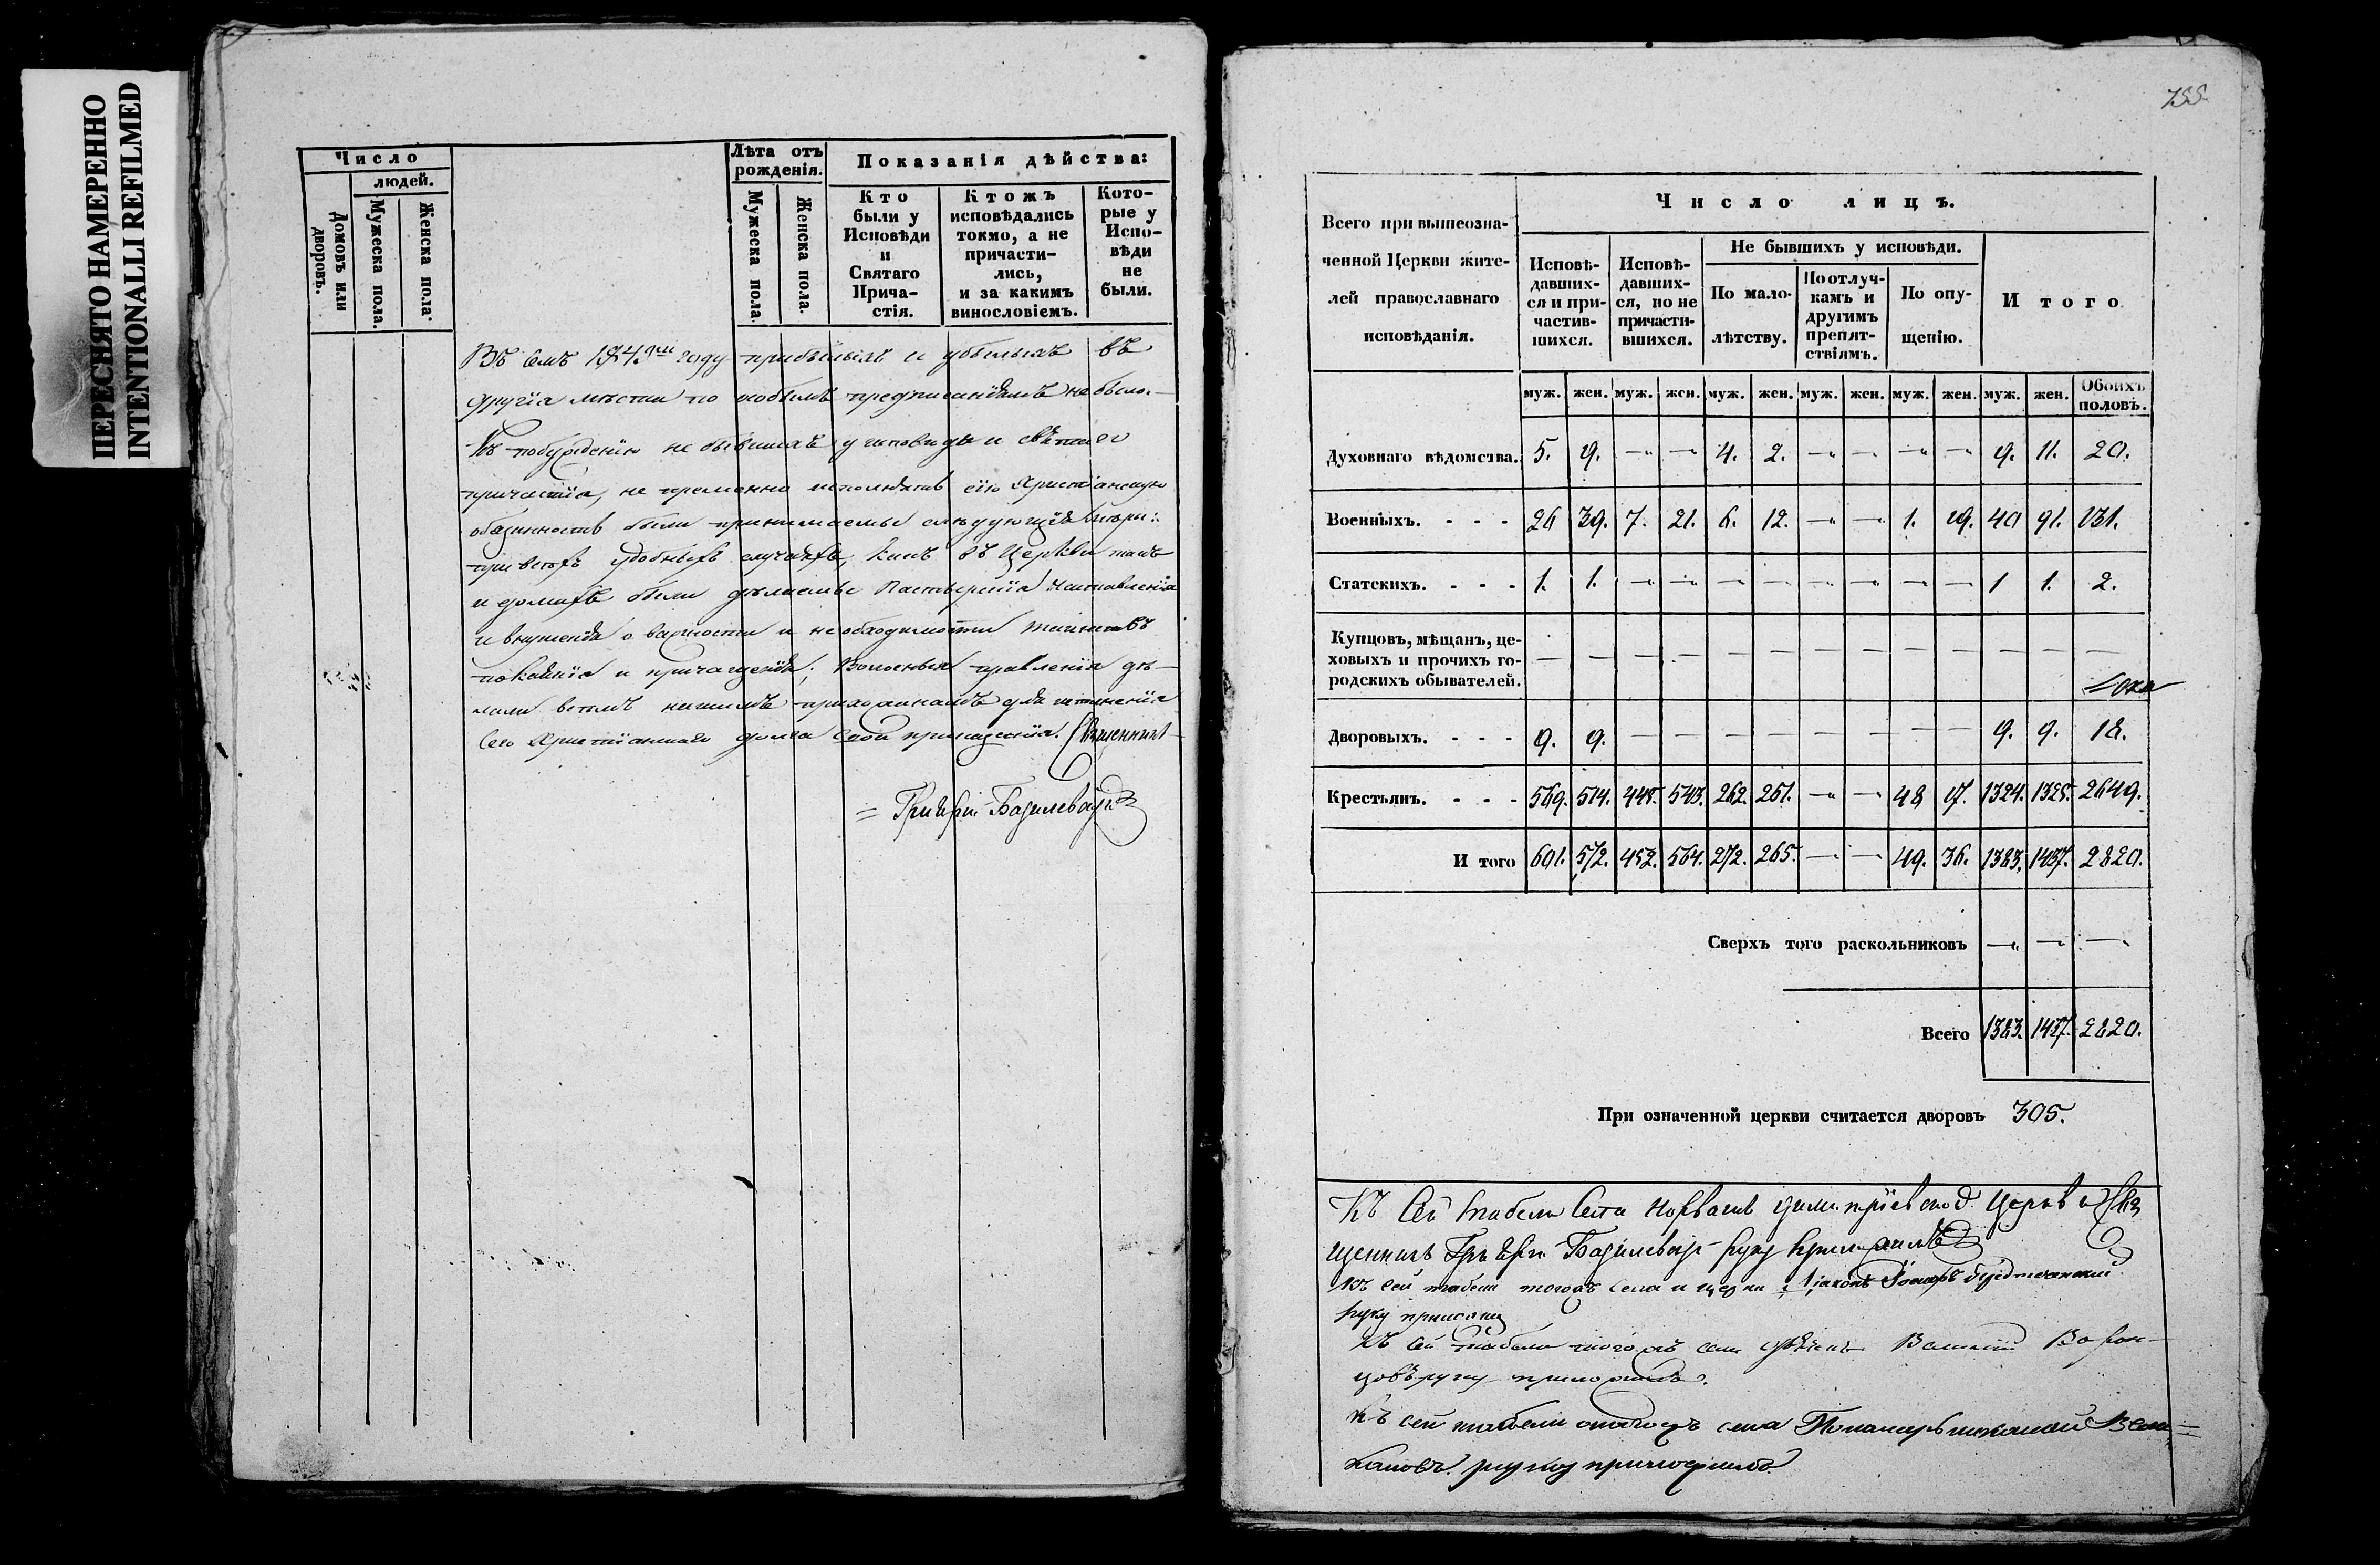 ПЕРЕСНЯТО НАМЕРЕННО
INTENTIONALLI REFILMED
Число
людей.
Домовъ или дворовъ.
Мужеска пола.
Женска пола.
Лѣта отъ
рожденія.
Мужеска пола.
Женска пола.
Показанія дѣйства:
Кто
были у
Исповѣди
и
Святаго
Прича-
стія.
Ктожъ
исповѣдались
токмо, а не
причасти-
лись,
и за какимъ
винословіемъ.
Кото-
рые у
Испо-
вѣди
не
были.
Въ семъ году прибылыхъ и убылыхъ въ
другія мѣста по особымъ предписаніямъ не было.
Къ побужденію не бывшихъ у исповѣди и святаго
причастія, не премѣнно исполнять сію христіанскую
обязанность были принимаемы слѣдующія мѣры:
при всѣхъ удобныхъ случаяхъ, какъ въ Церкви такъ
и домахъ были дѣлаемы Пастырскія наставленія
и внушенія о важности и необходимости таинствъ
покаянія и причащенія; Волосныя правленія дѣ-
лали всѣмъ нашимъ прихожанамъ для
сего христіанскаго долга свои Священникъ
Григорій Базилевичъ
755
Всего при вышеозна-
ченной Церкви жите-
лей православнаго
исповѣданія.
Число лицъ.
Исповѣ-
давших-
ся и при-
частив-
шихся.
Исповѣ-
давших-
ся, но не
причасти-
вшихся.
Не бывшихъ у исповѣди.
По мало-
лѣтству.
По отлуч-
камъ и
другимъ
препят-
ствіямъ.
По опу-
щенію.
Итого
муж. жен. муж. жен. муж. жен. муж. жен. муж. жен. муж. жен. Обоихъ
половъ.
Духовнаго вѣдомства. 5. 9. — — 4. 2. — — — — 9. 11. 20.
Военныхъ. - - - 26 39. 7. 21. 6. 12. — — 1. 19. 40 91. 131.
Статскихъ. - - - 1. 1. — — — — — — — — 1 1. 2.
Купцовъ, мѣщанъ, це-
ховыхъ и прочихъ го-
родскихъ обывателей. — — — — — — — — — — — — —
Дворовыхъ. - - - 9. 9. — — — — — — — — 9. 9. 18.
Крестьянъ. - - - 569. 514. 445. 543. 262. 251. — — 48 17. 1324. 1325. 2649.
И того 601. 572. 452. 564. 272. 265. — — 49. 36. 1383. 1437. 2820.
Сверхъ того раскольниковъ — — —
Всего 1383. 1437. 2820.
При означенной церкви считается дворовъ 305.
Къ сей табели села церкви Свя
щенникъ Григорій Базилевичъ руку приложилъ
Къ сей табели тогожъ села и церкви Діаконъ
руку
Къ сей табели тогожъ села Василій Ворон-
цовъ руку приложилъ.
Къ сей табели тогожъ села Пономарь
руку приложилъ.